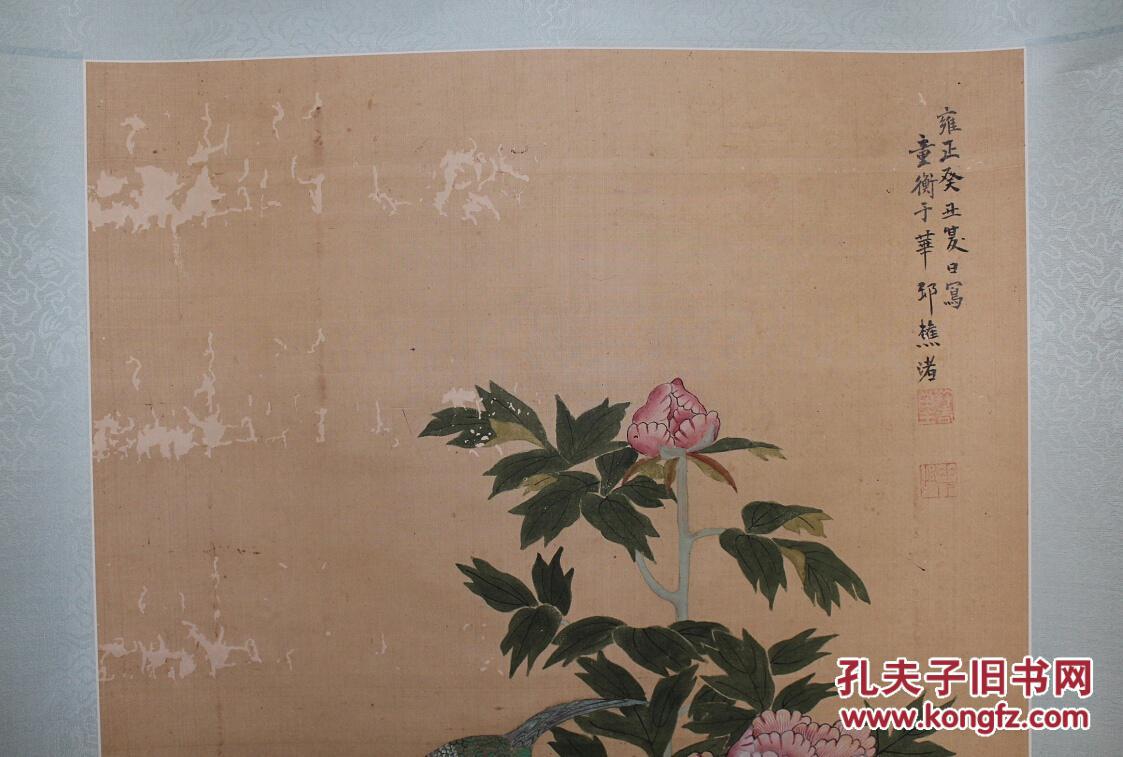 雍正癸丑夏日寫
童衡于華邨樵渚
孔夫子旧书网
www.kongfz.com